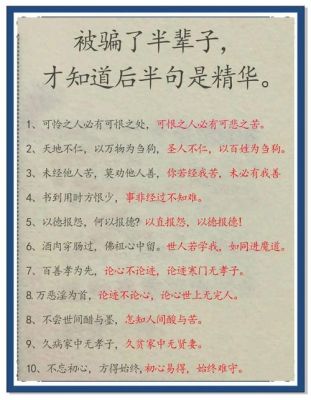 被骗了半辈子，
才知道后半句是精华。
1、可怜之人必有可恨之处，可恨之人必有可悲之苦。
2、天地不仁，以万物为刍狗，圣人不仁，以百姓为刍狗。
3、未经他人苦，莫劝他人善，你若经我苦，未必有我善
4、书到用时方恨少，事非经过不知难。
5、以德报怨，何以报德？以直报怨，以德报德！
6、酒肉穿肠过，佛祖心中留。世人若学我，如同进魔道。
7、百善孝为先，论心不论迹，论迹寒门无孝子。
8、万恶淫为首，论迹不论心，论心世上无完人。
8、不尝世间醋与墨，怎知人间酸与苦。
9、久病家中无孝子，久贫家中无贤妻。
10、不忘初心，方得始终，初心易得，始终难守。